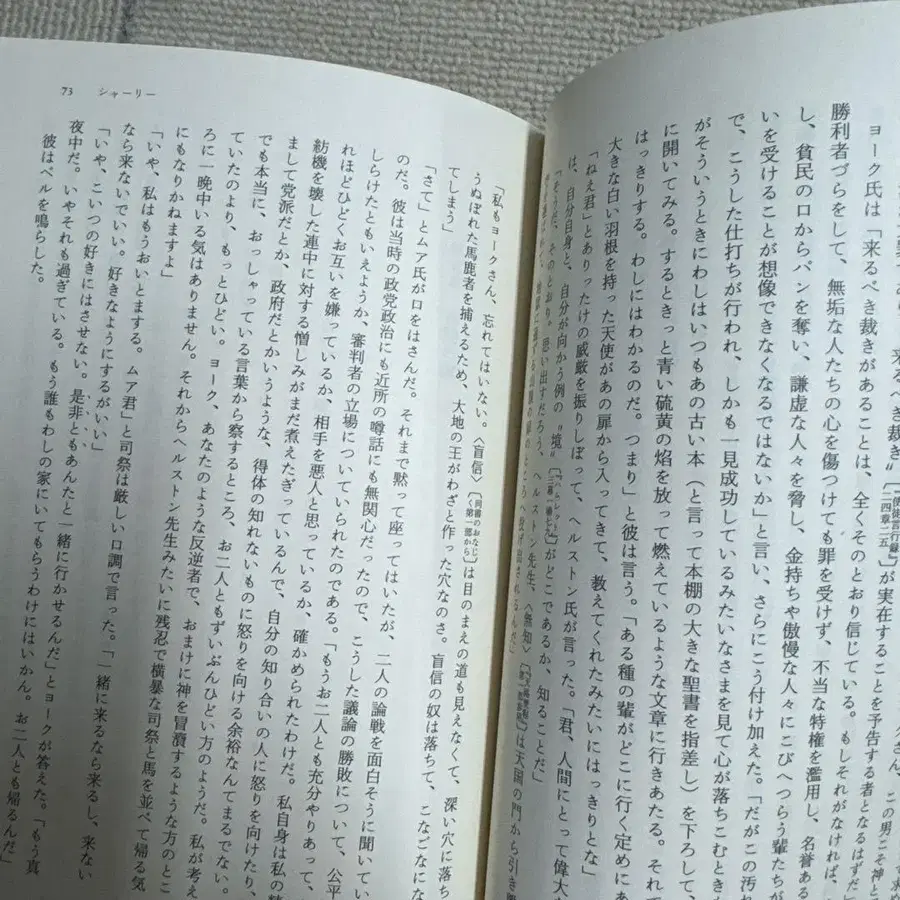 来るべき裁き”〔『使徒行録』二四章二五〕が実在することを予告する者となるはずだ」
ヨーク氏は「来るべき裁きがあることは、全くそのとおり信じている。もしそれがなければ、
勝利者づらをして、無垢な人たちの心を傷つけても罪を受けず、不当な特権を濫用し、名誉ある
し、貧民の口からパンを奪い、謙虚な人々を脅し、金持ちや傲慢な人々にこびへつらう輩たちが
いを受けることが想像できなくなるではないか」と言い、さらにこう付け加えた。「だがこの汚れ
で、こうした仕打ちが行われ、しかも一見成功しているみたいなさまを見て心が落ちこむときも
がそういうときにわしはいつもあの古い本（と言って本棚の大きな聖書を指差し）を下ろして、
に開いてみる。するときっと青い硫黄の焰を放って燃えているような文章に行きあたる。それ
はっきりする。わしにはわかるのだ。つまり」と彼は言う。「ある種の輩がどこに行く定めにあ
大きな白い羽根を持った天使があの扉から入ってきて、教えてくれたみたいにはっきりとな」
「ねえ君」とありったけの威厳を振りしぼって、ヘルストン氏が言った。「君、人間にとって偉大な
は、自分自身と、自分が向かう例の“境”〔『ハムレット』三幕一場七九〕がどこであるか、知ることだ」
「そうだ、そのとおり。思い出すだろう、ヘルストン先生、〈無知〉は天国の門から引き
73　シャーリー
「私もヨークさん、忘れてはいない。〈盲信〉〔同書のおなじく第一部から〕は目のまえの道も見えなくて、深い穴に落ち
うぬぼれた馬鹿者を捕えるため、大地の王がわざと作った穴なのさ。盲信の奴は落ちて、こなごなになっ
てしまう」
「さて」とムア氏が口をはさんだ。それまで黙って座ってはいたが、二人の論戦を面白そうに聞いてい
のだ。彼は当時の政党政治にも近所の噂話にも無関心だったので、こうした議論の勝敗について、公平
しらけたともいえようか、審判者の立場についていられたのである。「もうお二人とも充分やりあって、
れほどひどくお互いを嫌っているか、相手を悪人と思っているか、確かめられたわけだ。私自身は私の
紡機を壊した連中に対する憎しみがまだ煮えたぎっているんで、自分の知り合いの人に怒りを向けたり、
まして党派だとか、政府だとかいうような、得体の知れないものに怒りを向ける余裕なんてまるでない。
でも本当に、おっしゃっている言葉から察するところ、お二人ともずいぶんひどい方のようだ。私が考え
ていたのより、もっとひどい。ヨーク、あなたのような反逆者で、おまけに神を冒瀆するような方のとこ
ろに一晩中いる気はありません。それからヘルストン先生みたいに残忍で横暴な司祭と馬を並べて帰る気
にもなりかねますよ」
「いや、私はもうおいとまする。ムア君」と司祭は厳しい口調で言った。「一緒に来るなら来るし、来ない
なら来ないでいい。好きなようにするがいい」
「いや、こいつの好きにはさせない。是非ともあんたと一緒に行かせるんだ」とヨークが答えた。「もう真
夜中だ。いやそれも過ぎている。もう誰もわしの家にいてもらうわけにはいかん。お二人とも帰るんだ」
彼はベルを鳴らした。